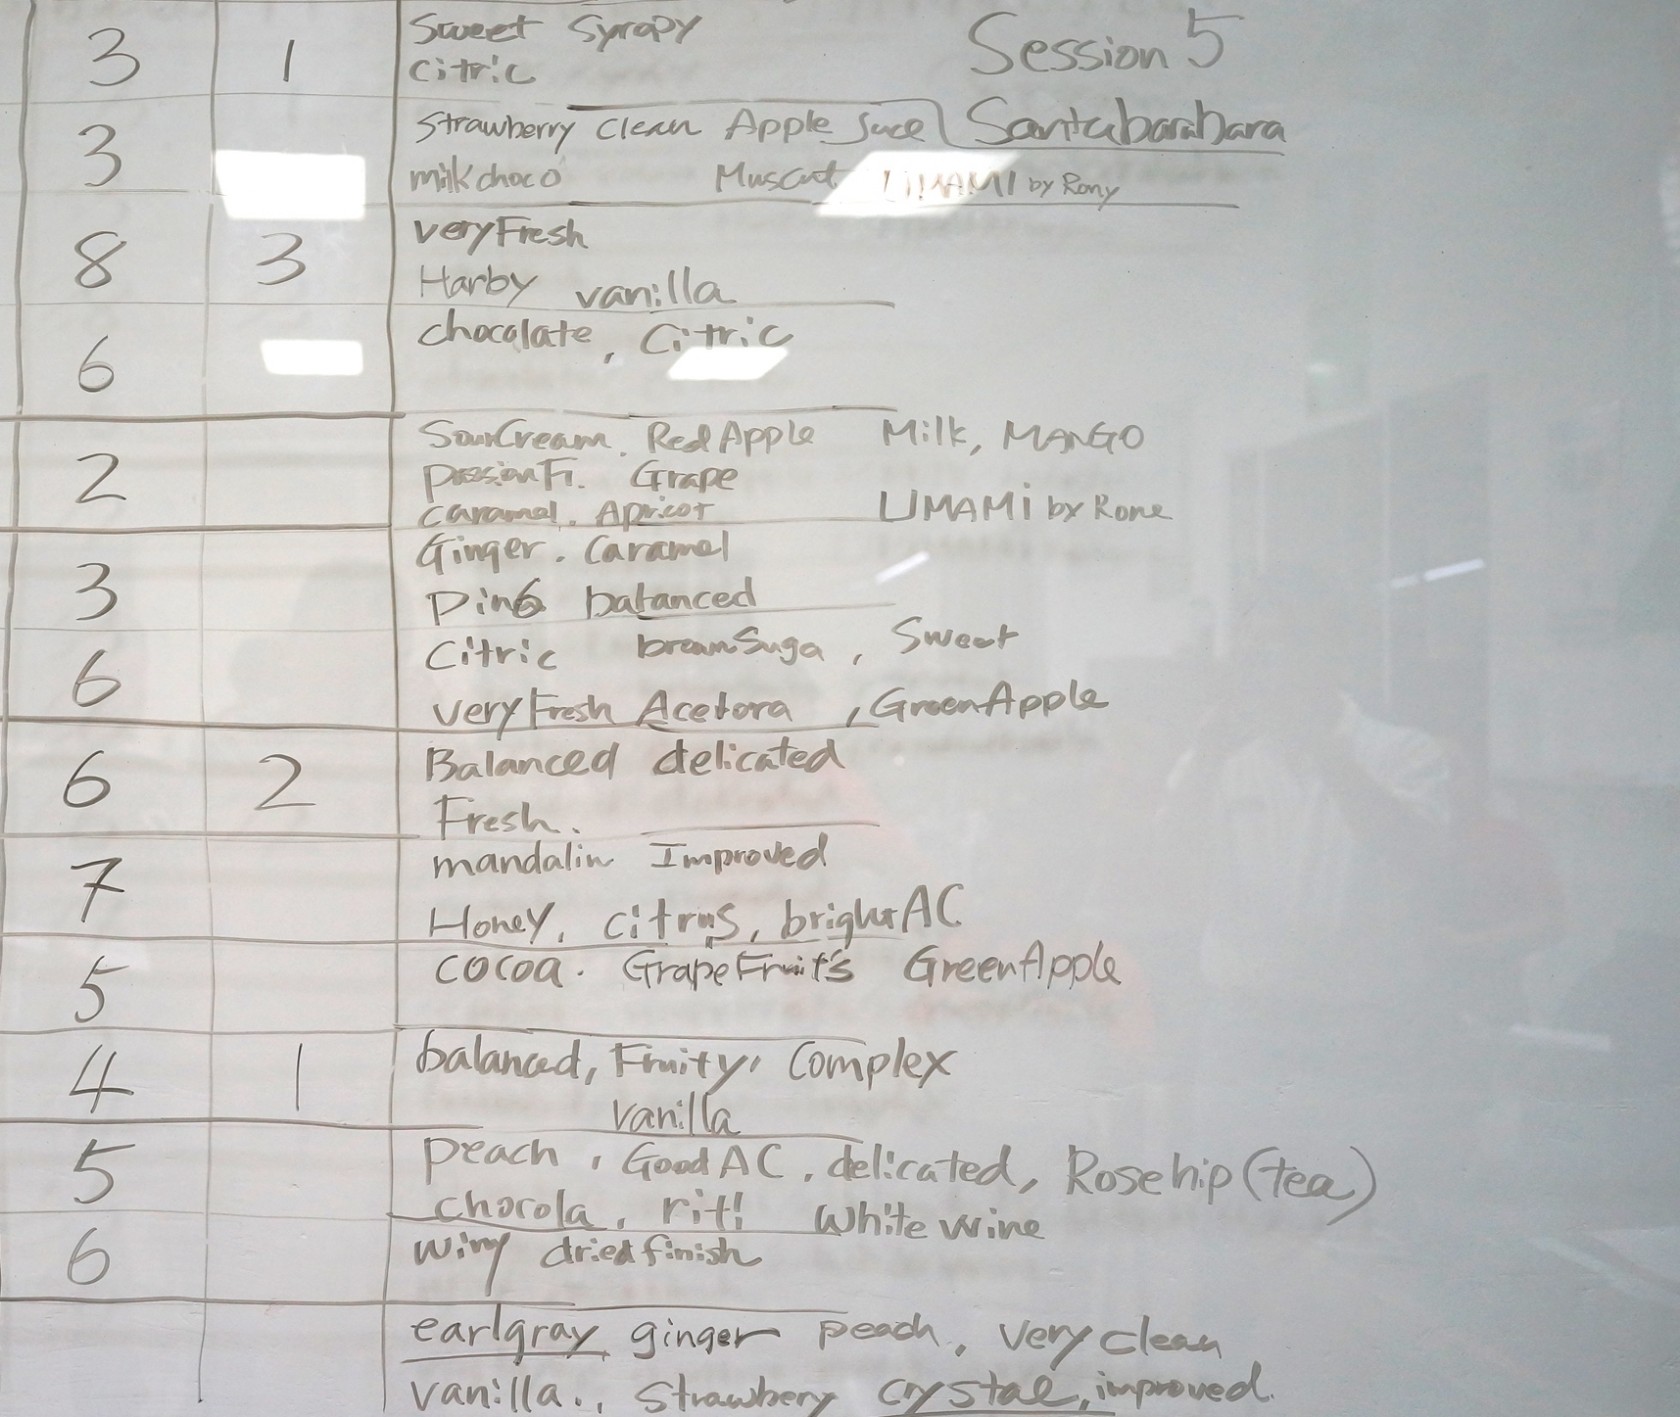 3 1 Sweet Syropy Session 5
Citric
3 Strawberry Clean Apple Juce Santabarabara
milkchoco Muscut UMAMI by Rony
8 3 veryFresh
Harby vanilla
6 chocolate, Citric
SourCream. RedApple Milk, MANGO
2 passionFr. Grape
caramel. Apricot UMAMI by Rone
3 Ginger. Caramel
balanced
6 Citric Sweet
veryFresh Acerora, GreenApple
6 2 Balanced delicated
Fresh.
7 mandalin Improved
Honey, citrus, AC
5 cocoa. GrapeFruit's GreenApple
4 1 balanced, Fruity, Complex
vanilla
5 peach, Good AC, delicated, Rosehip (tea)
chocola, White wine
6 winy dried finish
earlgray ginger peach, very clean
vanilla., Strawbery crystal, improved.